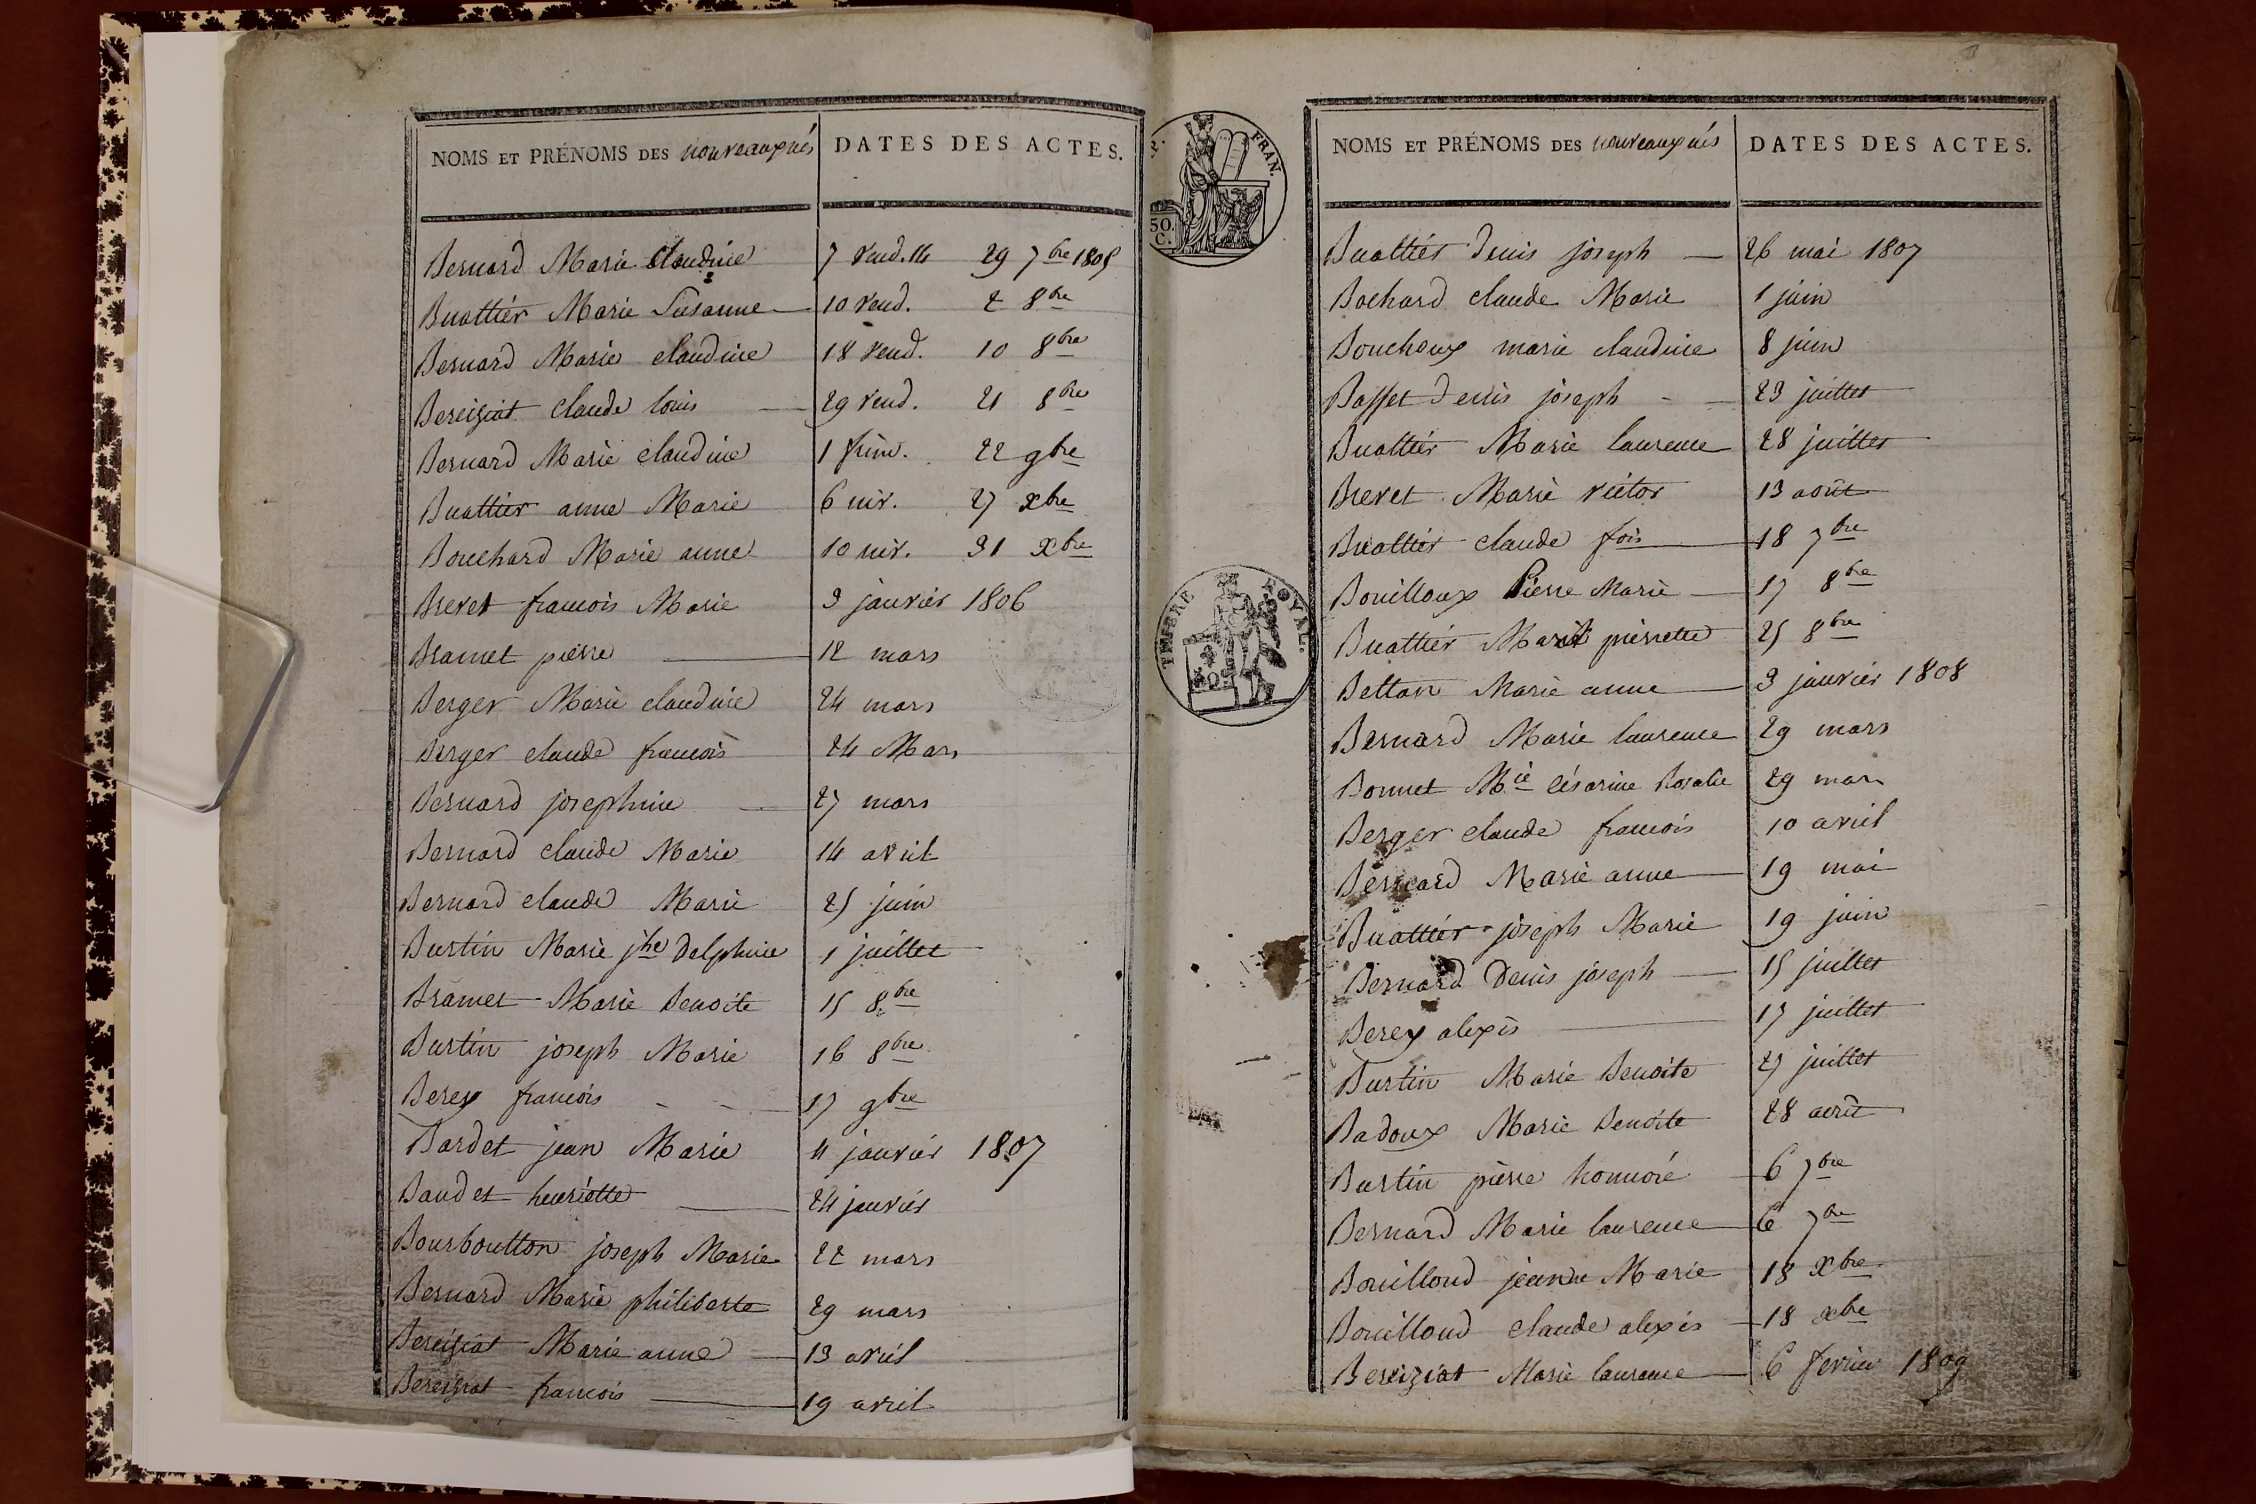 NOMS ET PRÉNOMS DES nouveaux nés DATES DES ACTES.
Bernard Marie Claudine 7 Vend. 14 29 7bre 1805
Buattier Marie Susanne 10 Vend. 2 8bre
Bernard Marie claudine 18 Vend. 10 8bre
Bereiziat claude louis 29 Vend. 21 8bre
Bernard Marie claudine 1 frim. 22 9bre
Buattier anne Marie 6 niv. 27 xbre
Bouchard Marie anne 10 niv. 31 xbre
Brevet francois Marie 3 janvier 1806
Bramet pierre 12 mars
Berger Marie claudine 24 mars
Berger claude francois 24 Mars
Bernard josephine 27 mars
Bernard claude Marie 14 avril
Bernard claude Marie 25 juin
Burtin Marie jhe Delphine 1 juillet
Bramet Marie Benoite 15 8bre
Burtin joseph Marie 16 8bre
Berex francois 17 9bre
Bardet jean Marie 4 janvier 1807
Baudet henriette 24 janvier
Bourboutton joseph Marie 22 mars
Bernard Marie philiberte 29 mars
Bereiziat Marie anne 13 avril
Bereiziat francois 19 avril
FRAN.
50.
C.
TIMBRE ROYAL.
NOMS ET PRÉNOMS DES nouveaux nés DATES DES ACTES.
Buattier Denis joseph 26 mai 1807
Bochard claude Marie 1 juin
Bouchoux marie claudine 8 juin
Basset Denis joseph 23 juillet
Buattier Marie laurence 28 juillet
Brevet Marie victor 13 août
Buattier claude fois 18 7bre
Bouilloux Pierre Marie 17 8bre
Buattier Marie pierrette 25 8bre
Bettan Marie anne 3 janvier 1808
Bernard Marie laurence 29 mars
Bonnet Mie Césarine Rosalie 29 mars
Berger claude francois 10 avril
Bernard Marie anne 19 mai
Buattier joseph Marie 19 juin
Bernard Denis joseph 15 juillet
Berex alexis 17 juillet
Burtin Marie Benoite 27 juillet
Badoux Marie Benoite 28 août
Burtin pierre honnoré 6 7bre
Bernard Marie laurence 6 7bre
Bouilloud jeanne Marie 18 xbre
Bouilloud claude alexis 18 xbre
Bereiziat Marie laurence 6 fevrier 1809